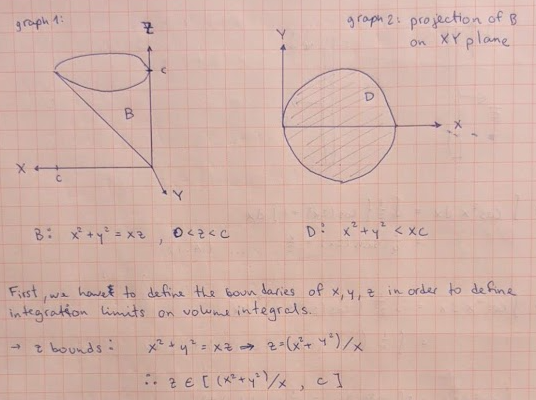 graph 1:
graph 2: projection of B
on XY plane
Z
c
B
X
c
Y
Y
D
X
B: x² + y² = xz , 0<z<c
D: x² + y² < xc
First, we have to define the boundaries of x, y, z in order to define
integration limits on volume integrals.
→ z bounds: x² + y² = xz ⇒ z = (x² + y²)/x
∴ z ∈ [ (x²+y²)/x , c ]